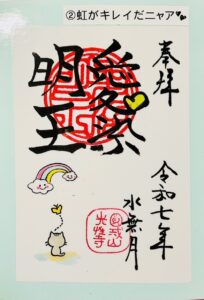 ②虹がキレイだニャア
奉拝
愛染
明王
令和七年
水無月